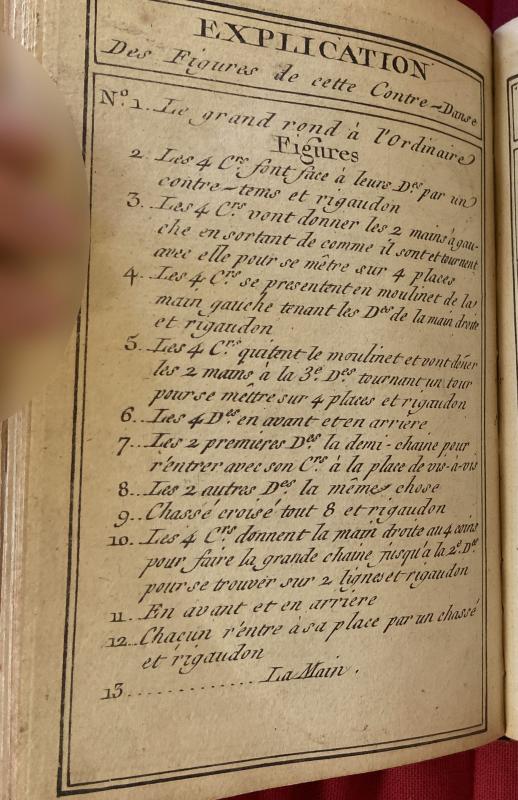 EXPLICATION
Des Figures de cette Contre-Danse
N.º 1. Le grand rond à l'Ordinaire
Figures
2. Les 4 C.rs font face à leurs D.es par un
contre-tems et rigaudon
3. Les 4 C.rs vont donner les 2 mains à gau-
che en sortant de comme il sont et tournent
avec elle pour se mêtre sur 4 places
4. Les 4 C.rs se presentent en moulinet de la
main gauche tenant les D.es de la main droite
et rigaudon
5. Les 4 C.rs quitent le moulinet et vont dõner
les 2 mains à la 3.e D.es tournant un tour
pour se mettre sur 4 places et rigaudon
6. Les 4 D.es en avant et en arriere
7. Les 2 premieres D.es la demi-chaine pour
r'entrer avec son C.rs à la place de vis-à-vis
8. Les 2 autres D.es la même chose
9. Chassé croisé tout 8 et rigaudon
10. Les 4 C.rs donnent la main droite au 4 coins
pour faire la grande chaine jusqu'a la 2.e D.es
pour se trouver sur 2 lignes et rigaudon
11. En avant et en arriére
12. Chacun r'entre à sa place par un chassé
et rigaudon
13 . . . . . . . . . . . . . La Main.